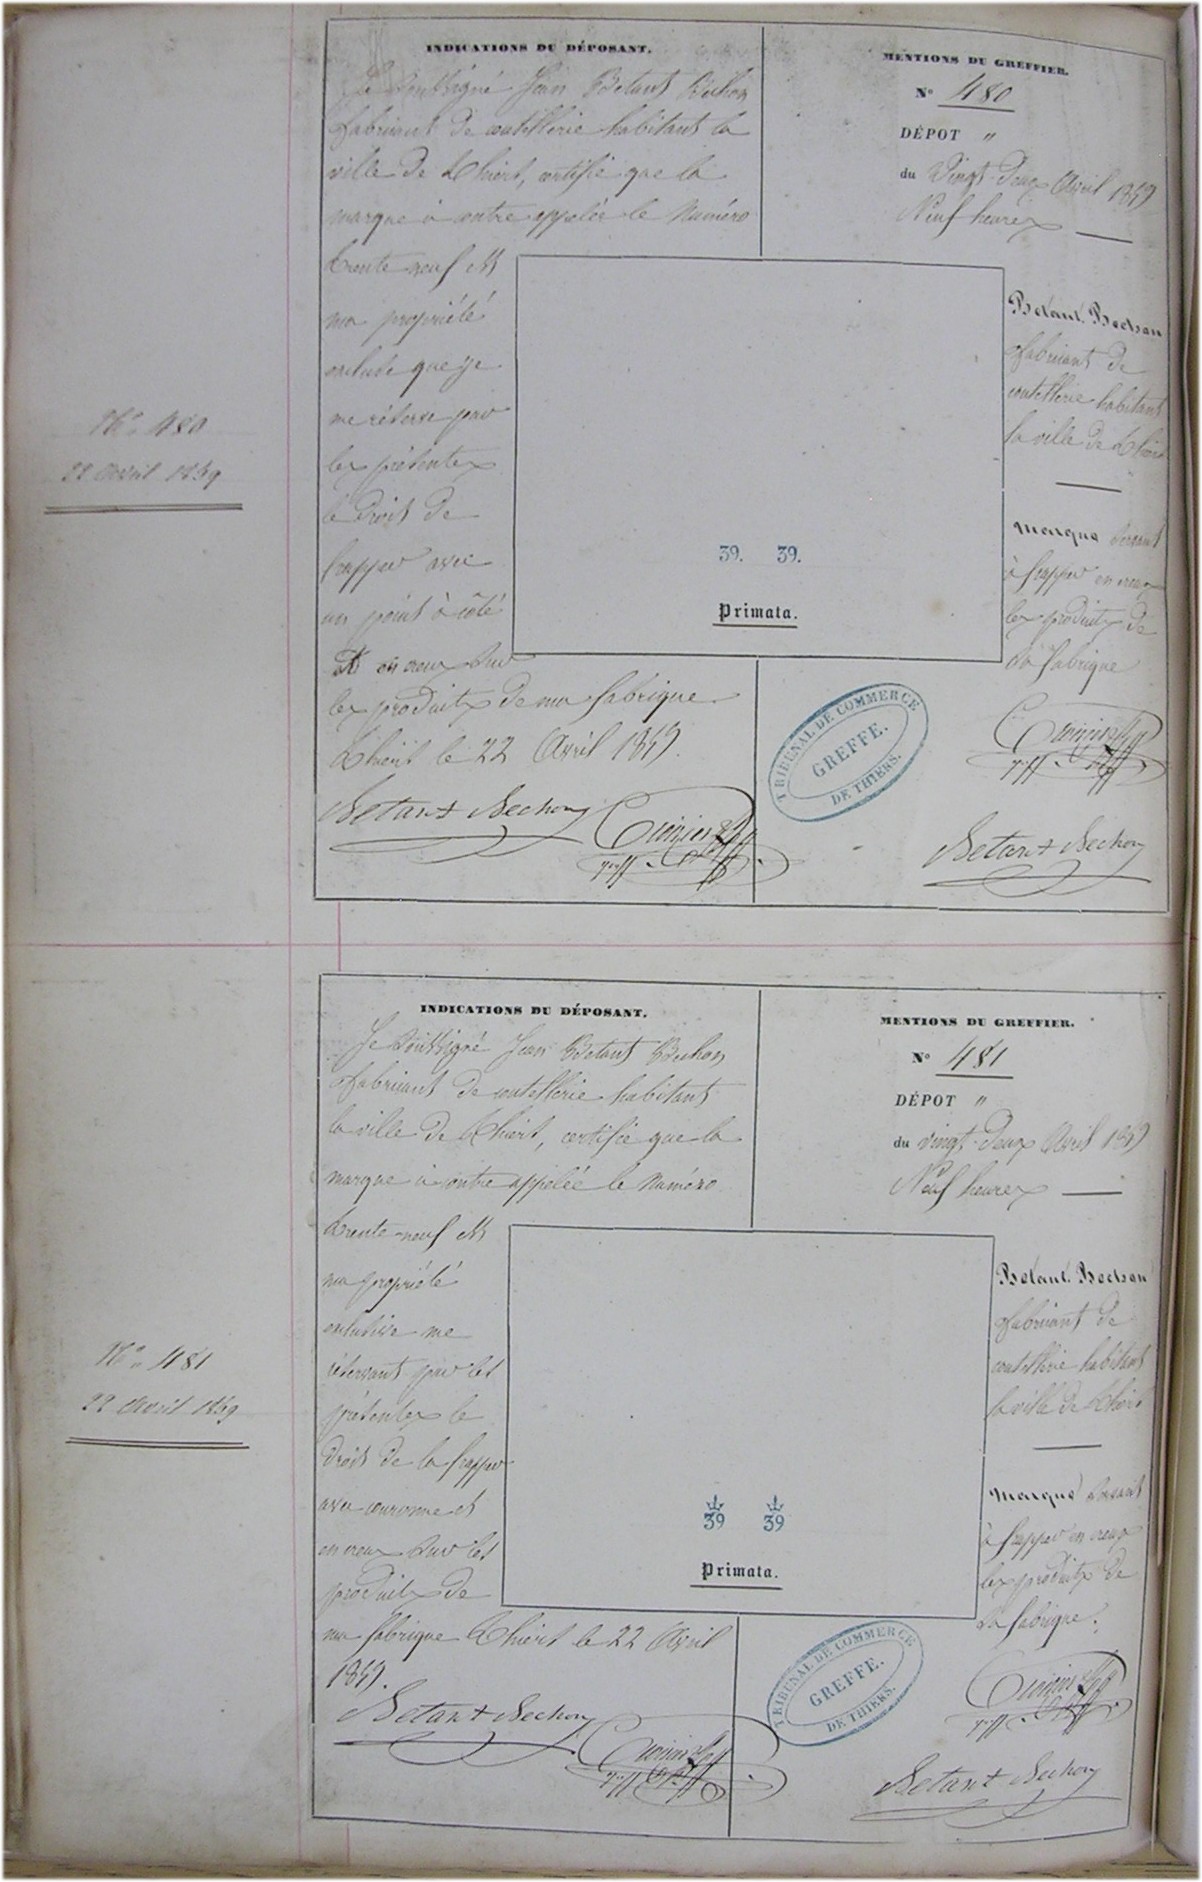 N° 480
22 Avril 1859
INDICATIONS DU DÉPOSANT.
Je soussigné Jean Betant Bechon
fabricant de coutellerie habitant la
ville de Thiers, certifie que la
marque ci contre appelée le Numéro
trente neuf est
ma propriété
exclusive que je
me réserve par
les présentes
le droit de
frapper avec
un point à côté
et en creux sur
les produits de ma fabrique
Thiers le 22 Avril 1859.
Betant Bechon
MENTIONS DU GREFFIER.
N° 480
DÉPOT "
du Vingt deux Avril 1859
Neuf heures
Betant Bechon
fabricant de
coutellerie habitant
la ville de Thiers
Marque servant
à frapper en creux
les produits de
sa fabrique
39. 39.
Primata.
TRIBUNAL DE COMMERCE
GREFFE.
DE THIERS.
Betant Bechon
N° 481
22 Avril 1859
INDICATIONS DU DÉPOSANT.
Je soussigné Jean Betant Bechon
fabricant de coutellerie habitant
la ville de Thiers, certifie que la
marque ci contre appelée le Numéro
trente-neuf est
ma propriété
exclusive me
réservant par les
présentes le
droit de la frapper
avec couronne et
en creux sur les
produits de
ma fabrique Thiers le 22 Avril
1859.
Betant Bechon
MENTIONS DU GREFFIER.
N° 481
DÉPOT "
du vingt-deux Avril 1859
Neuf heures
Betant Bechon
fabricant de
coutellerie habitant
la ville de Thiers
Marque servant
à frapper en creux
les produits de
sa fabrique.
39 39
Primata.
TRIBUNAL DE COMMERCE
GREFFE.
DE THIERS.
Betant Bechon